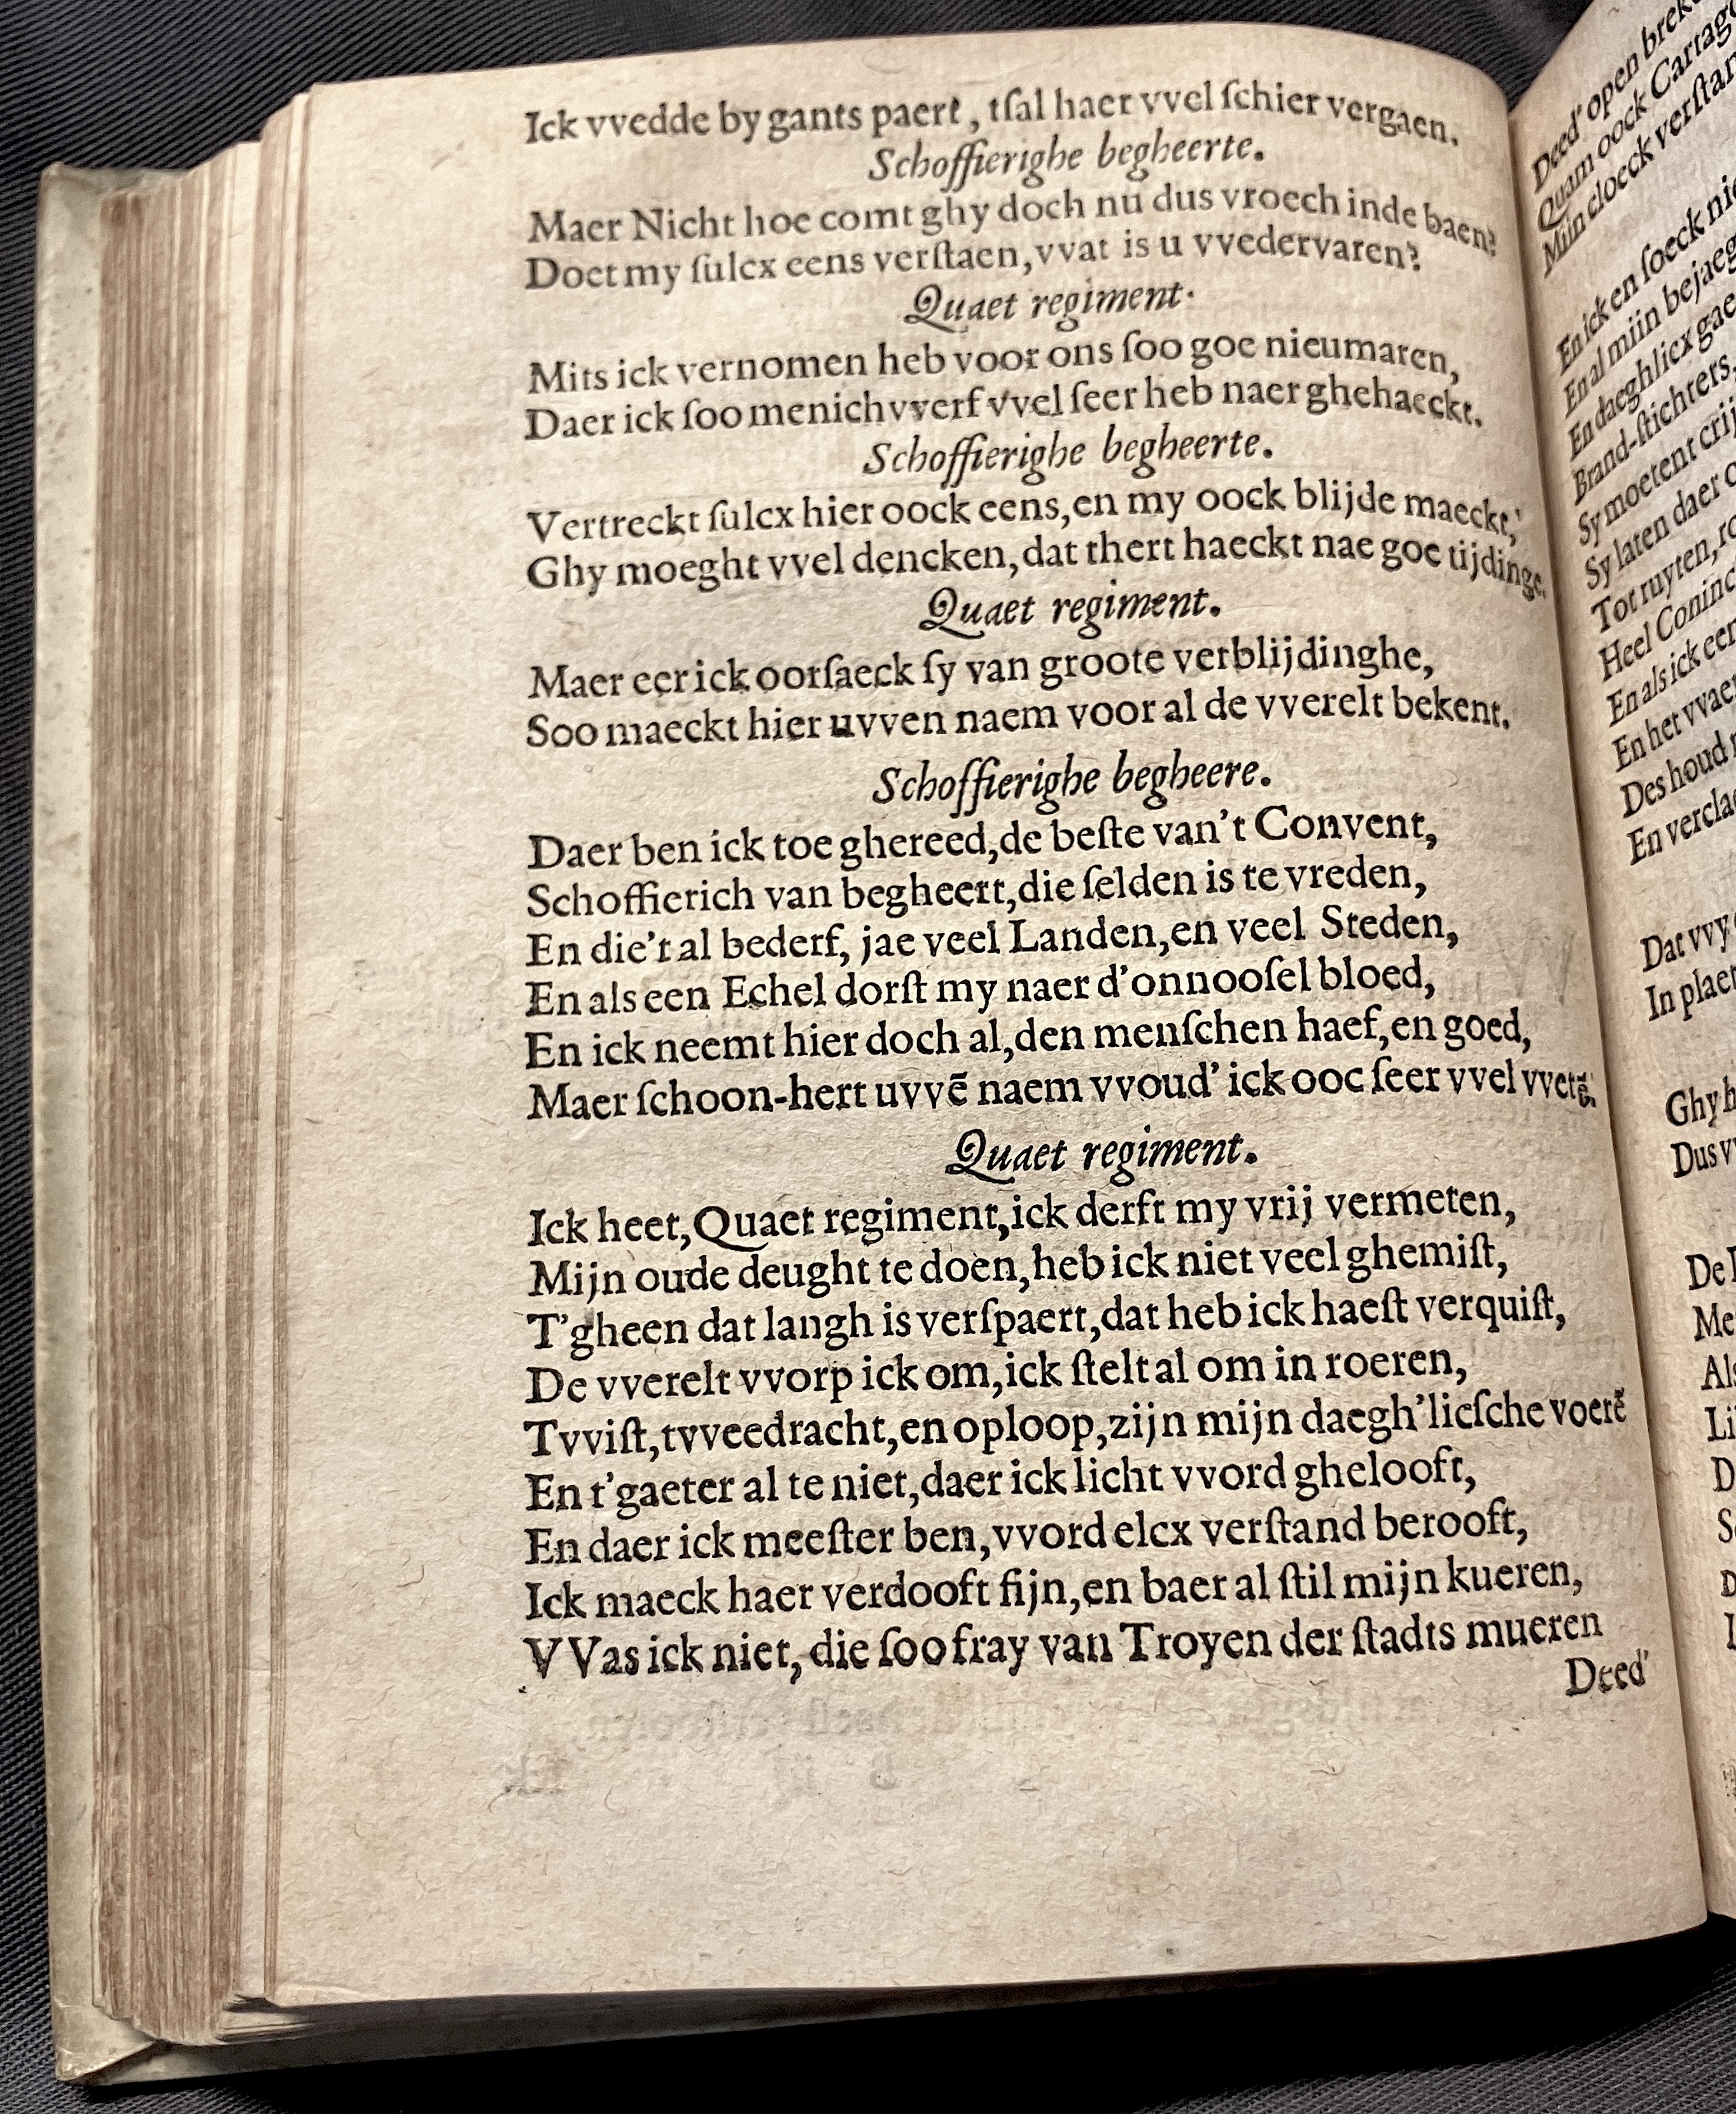 Ick vvedde by gants paert, tſal haer vvel ſchier vergaen.
Schoffierighe begheerte.
Maer Nicht hoe comt ghy doch nu dus vroech inde baen?
Doet my ſulcx eens verſtaen, vvat is u vvedervaren?
Quaet regiment.
Mits ick vernomen heb voor ons ſoo goe nieumaren,
Daer ick ſoo menichvverf vvel ſeer heb naer ghehaeckt.
Schoffierighe begheerte.
Vertreckt ſulcx hier oock eens, en my oock blijde maeckt,
Ghy moeght vvel dencken, dat thert haeckt nae goe tijdinge.
Quaet regiment.
Maer eer ick oorſaeck ſy van groote verblijdinghe,
Soo maeckt hier uvven naem voor al de vverelt bekent.
Schoffierighe begheere.
Daer ben ick toe ghereed, de beſte van't Convent,
Schoffierich van begheert, die ſelden is te vreden,
En die't al bederf, jae veel Landen, en veel Steden,
En als een Echel dorſt my naer d'onnooſel bloed,
En ick neemt hier doch al, den menſchen haef, en goed,
Maer ſchoon-hert uvvē naem vvoud' ick ooc ſeer vvel vvetē.
Quaet regiment.
Ick heet, Quaet regiment, ick derft my vrij vermeten,
Mijn oude deught te doen, heb ick niet veel ghemiſt,
T'gheen dat langh is verſpaert, dat heb ick haeſt verquiſt,
De vverelt vvorp ick om, ick ſtelt al om in roeren,
Tvviſt, tvveedracht, en oploop, zijn mijn daegh'lieſche voerē
En t'gaeter al te niet, daer ick licht vvord ghelooft,
En daer ick meeſter ben, vvord elcx verſtand berooft,
Ick maeck haer verdooft fijn, en baer al ſtil mijn kueren,
VVas ick niet, die ſoo fray van Troyen der ſtadts mueren
Deed'
Deed' open brek
Quam oock Cartag
Mijn cloeck verſtan
En ick en ſoeck nie
En al miin bejaeg
En daeghlicx gae
Brand-ſtichters,
Sy moetent crij
Sy laten daer
Tot ruyten, ro
Heel Coninc
En als ick een
En het vvaer
Des houd
En verclae
Dat vvy
In plaet
Ghy h
Dus v
De
Me
Als
Li
D